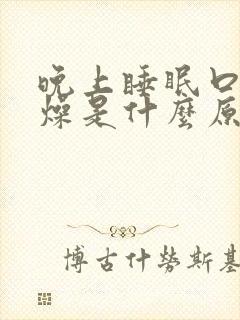 晚上睡眠口
燥是什麼原
博古什勞斯基